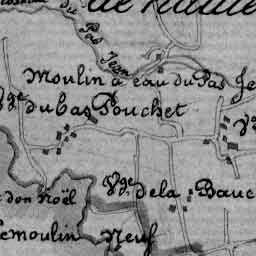 Pas Jean
Moulin à eau du Pas Je
Vge du bas Pouchet
Vge de la Bauc
don Noël
Lemoulin Neuf